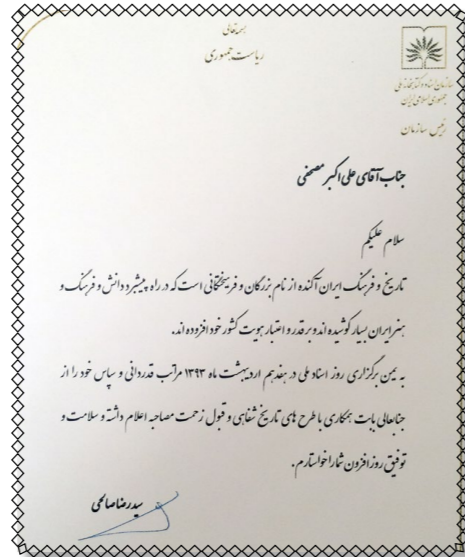 بسمه تعالی
ریاست جمهوری
سازمان اسناد و کتابخانه ملی
جمهوری اسلامی ایران
رئیس سازمان
جناب آقای علی اکبر مصحفی
سلام علیکم
تاریخ و فرهنگ ایران آکنده از نام بزرگان و فریختگانی است که در راه پیشبرد دانش و فرهنگ و
هنر ایران بسیار کوشیده اند و بر قدر و اعتبار هویت کشور خود افزوده اند.
به یمن برگزاری روز اسناد ملی در هفدهم اردیبهشت ماه ۱۳۹۳ مراتب قدردانی و سپاس خود را از
جنابعالی بابت همکاری با طرح های تاریخ شفاهی و قبول زحمت مصاحبه اعلام داشته و سلامت و
توفیق روز افزون شما را خواستارم.
سیدرضا صالحی